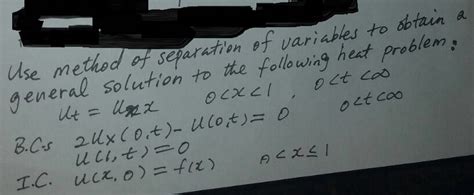 Use method of separation of variables to obtain a
general solution to the following heat problem:
Ut = Uxx 0<x<1, 0<t<∞
B.C.s 2Ux(0,t) - U(0,t) = 0 0<t<∞
U(1,t) = 0
I.C. U(x,0) = f(x) 0<x≤1